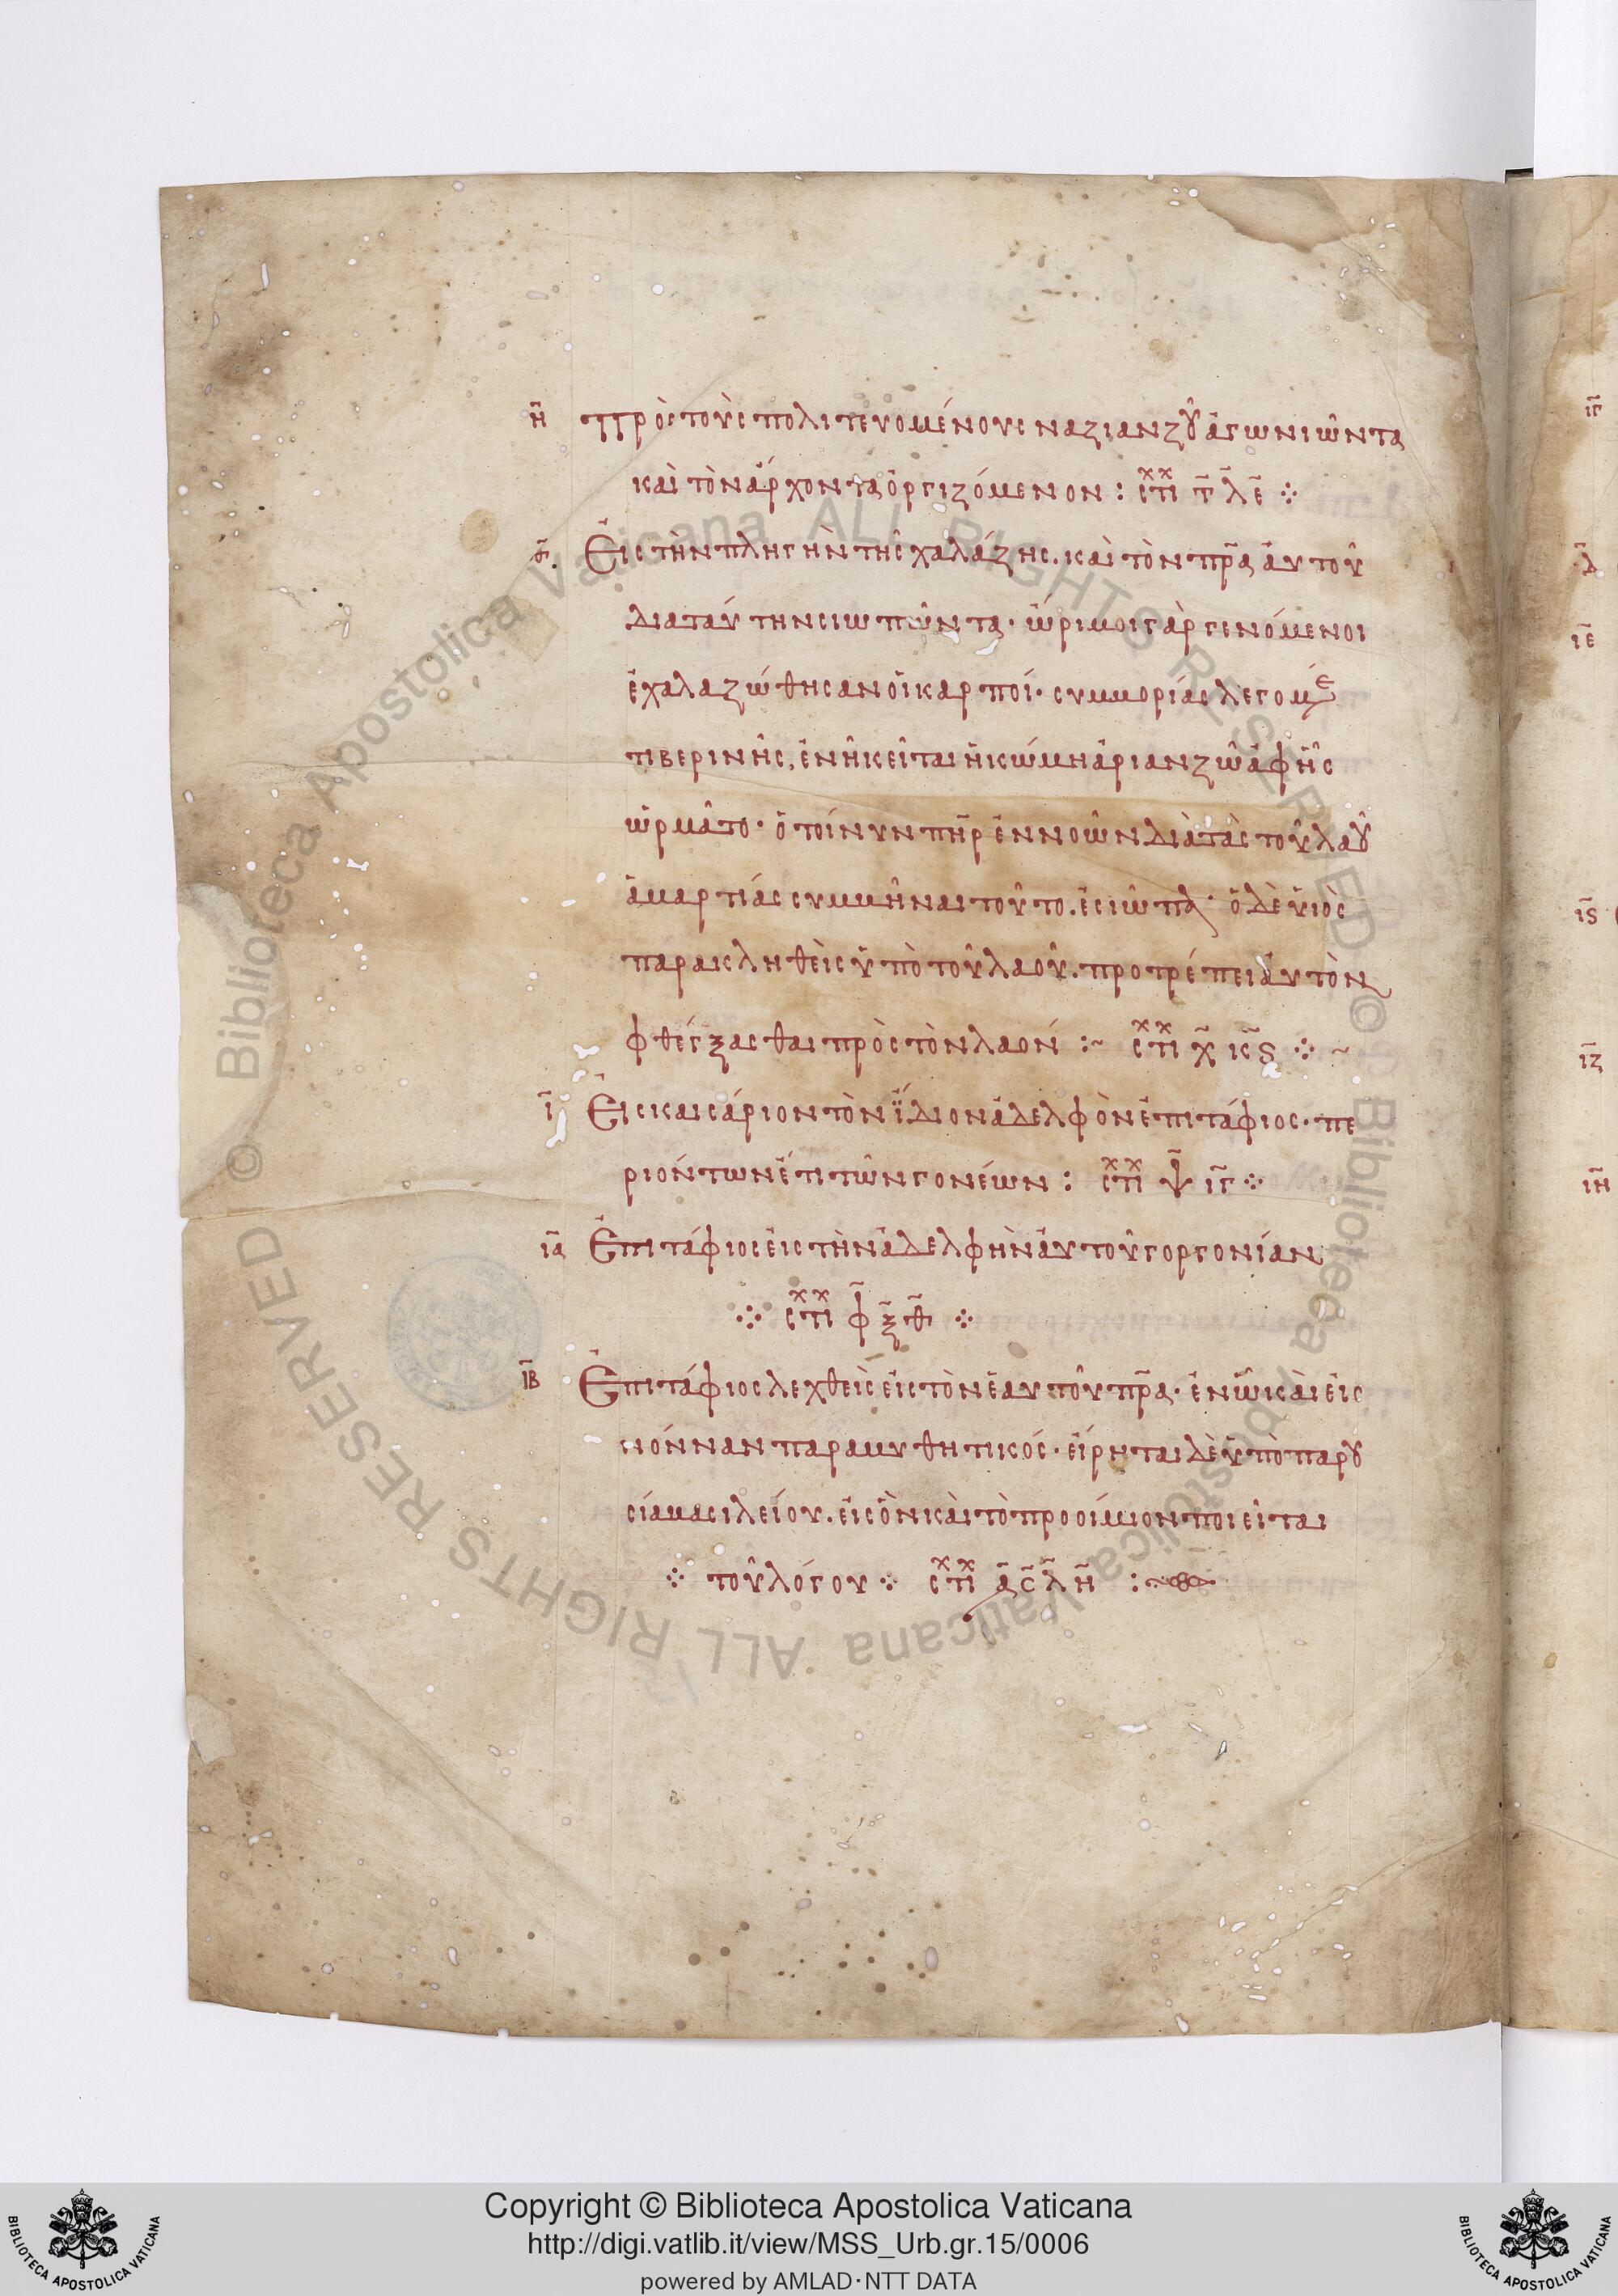 η̄ πρὸς τοὺς πολιτευομένους ναζιανζοῦ ἀγωνιῶντας
καὶ τὸν ἄρχοντα ὀργιζόμενον : στιχχ τ̄ λ̄ε̄ ⁘
θ̄. Εἰς τὴν πληγὴν τῆς χαλάζης. καὶ τὸν πρ̄α αὐτοῦ
διαταύτην σιωπῶντα· ὥριμοι γὰρ γενόμενοι
ἐχαλαζώθησαν οἱ καρποί· συμμορίας λεγομέ
τιβερινῆς, ἐν ἧ κεῖται ἡ κώμη ἀριανζῶ ἀφῆς
ὡρμᾶτο· ὁ τοίνυν πη̄ρ ἐννοῶν διὰ τὰς τοῦ λαοῦ
ἁμαρτίας συμμῆναι τοῦτο. ἐσιώπα· ὁ δὲ υἱὸς
παρακληθεὶς ὑπὸ τοῦ λαοῦ. προτρέπει αὐτὸν
φθέγξασθαι πρὸς τὸν λαόν :~ στιχχ χ̄ κ̄ς̄ ⁘ ~
ῑ Εἰς καισάριον τὸν ἴ̈διον ἀδελφὸν ἐπιτάφιος· πε
ριόντων ἔτι τῶν γονέων : στιχχ ψ̄ ῑγ̄ ⁘
ῑᾱ Ἐπιτάφιος εἰς τὴν ἀδελφὴν αὐτοῦ γοργονίαν
⁘ στιχχ φ̄ ξ̄θ̄ ⁘
ῑβ̄ Ἐπιτάφιος λεχθεὶς εἰς τὸν ἑαυτοῦ πρ̄α· ἐν ὧ καὶ εἰς
νόνναν παραμυθητικός· εἴρηται δὲ ὑπὸ παρου
σία βασιλείου. εἰς ὃν καὶ τὸ προοίμιον ποιεῖται
⁘ τοῦ λόγου ⁘ στιχχ ͵ᾱ σ̄ λ̄η̄ :~
ῑγ̄
ῑδ̄
ῑε̄
ῑς̄
ῑζ̄
ῑη̄
© Biblioteca Apostolica Vaticana ALL RIGHTS RESERVED © Biblioteca Apostolica Vaticana ALL RIGHTS RESERVED
Copyright © Biblioteca Apostolica Vaticana
http://digi.vatlib.it/view/MSS_Urb.gr.15/0006
powered by AMLAD·NTT DATA
BIBLIOTECA APOSTOLICA VATICANA
BIBLIOTECA APOSTOLICA VATICANA